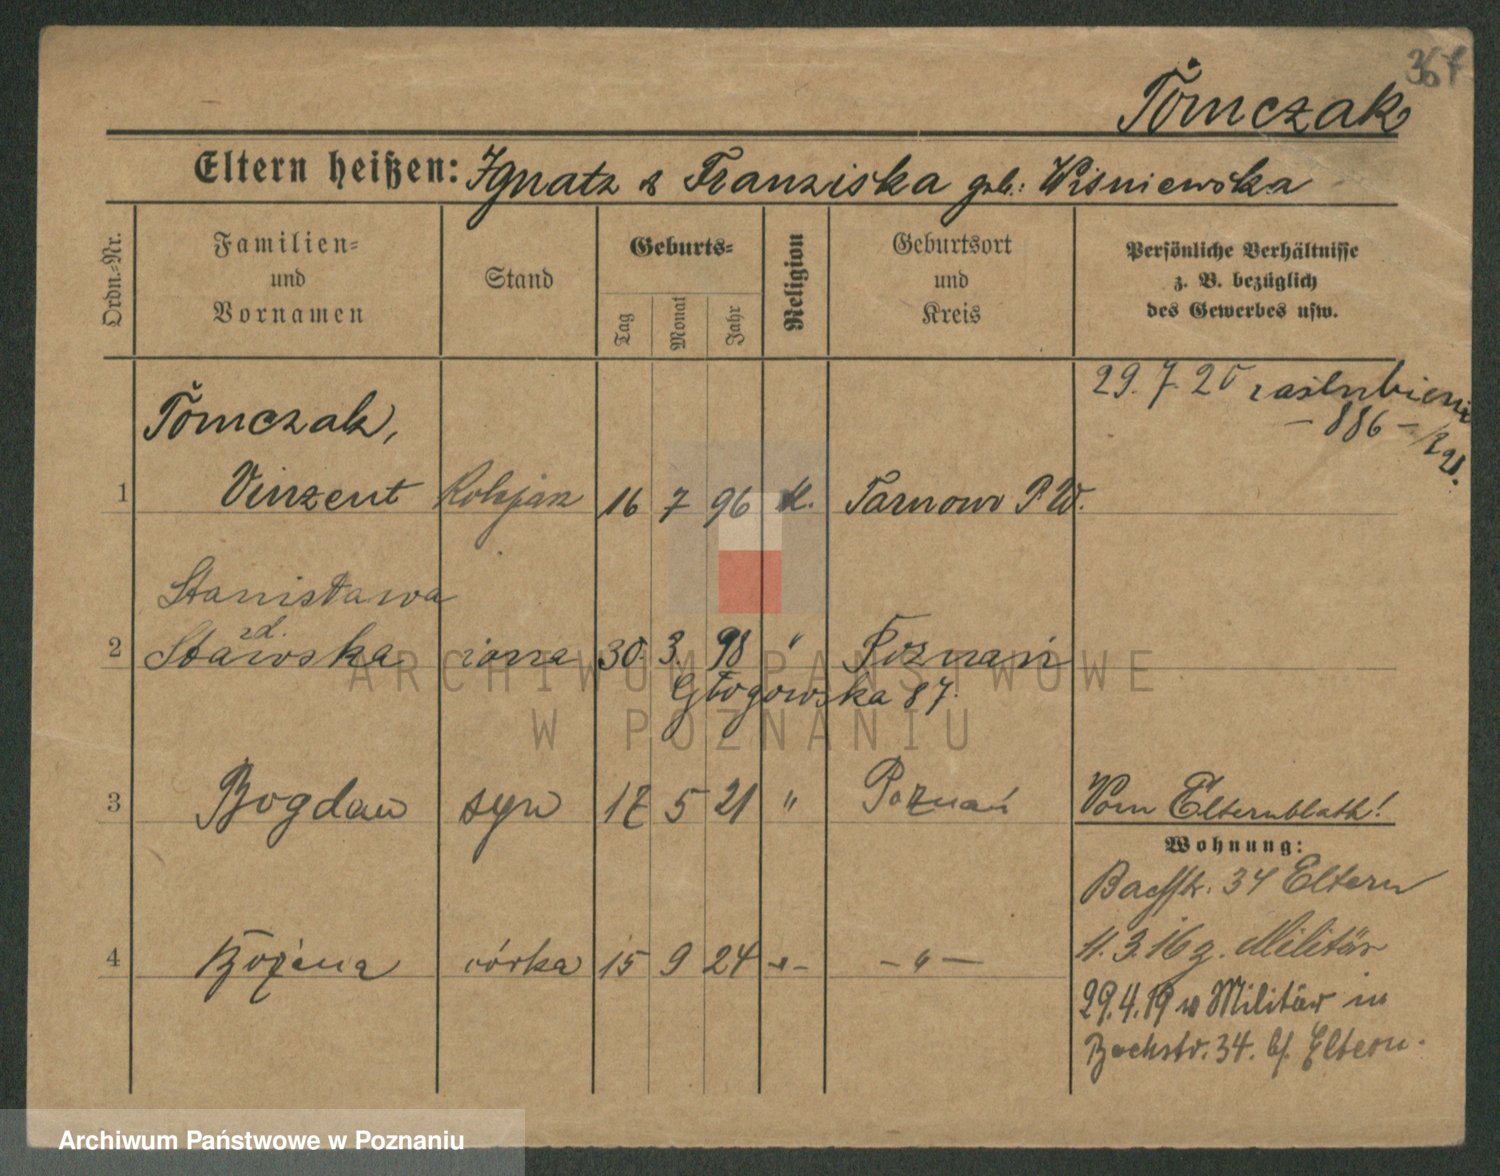 367
Tomczak
Eltern heißen: Ignatz & Franziska geb: Wiśniewska
Ordn.-Nr.
Familien- und Vornamen
Stand
Geburts-
Tag
Monat
Jahr
Religion
Geburtsort und Kreis
Persönliche Verhältnisse z. B. bezüglich des Gewerbes usw.
29. 7. 20 zaślubieni
– 886 –
Tomczak,
1 Vinzent Kolejarz 16 7 96 K. Tarnowo P.W.
Stanisława
zd.
2 Stawska żona 30. 3. 98 " Poznań
Głogowska 87.
3 Bogdan syn 17 5 21 " Poznań
Vom Elternblatt!
Wohnung:
Bachstr. 34 Eltern
4 Bożena córka 15 9 24 -"- -"-
11.3.16 z. Militär
29.4.19 v Militär in
Bachstr. 34. b/ Eltern.
ARCHIWUM PAŃSTWOWE
W POZNANIU
Archiwum Państwowe w Poznaniu